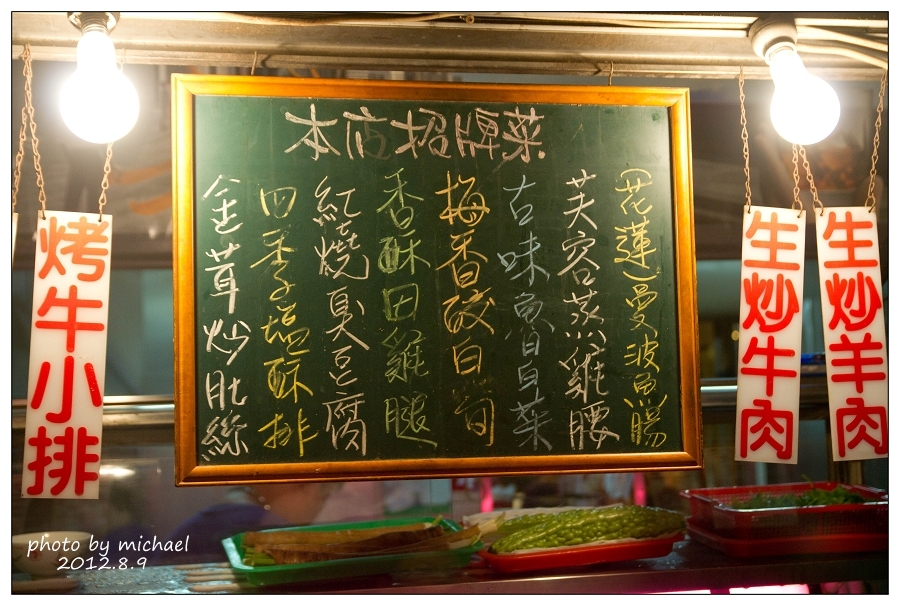 本店招牌菜
(花蓮)曼波魚腸
芙容蒸雞腰
古味魯白菜
梅香破白筍
香酥田雞腿
紅燒臭豆腐
四季塩酥排
金茸炒肚絲
烤牛小排
生炒牛肉
生炒羊肉
photo by michael
2012.8.9